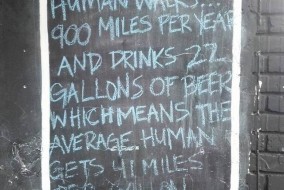 HUMAN WALKS...
900 MILES PER YEAR
AND DRINKS 22
GALLONS OF BEER
WHICH MEANS THE
AVERAGE HUMAN
GETS 41 MILES
PER GALLON